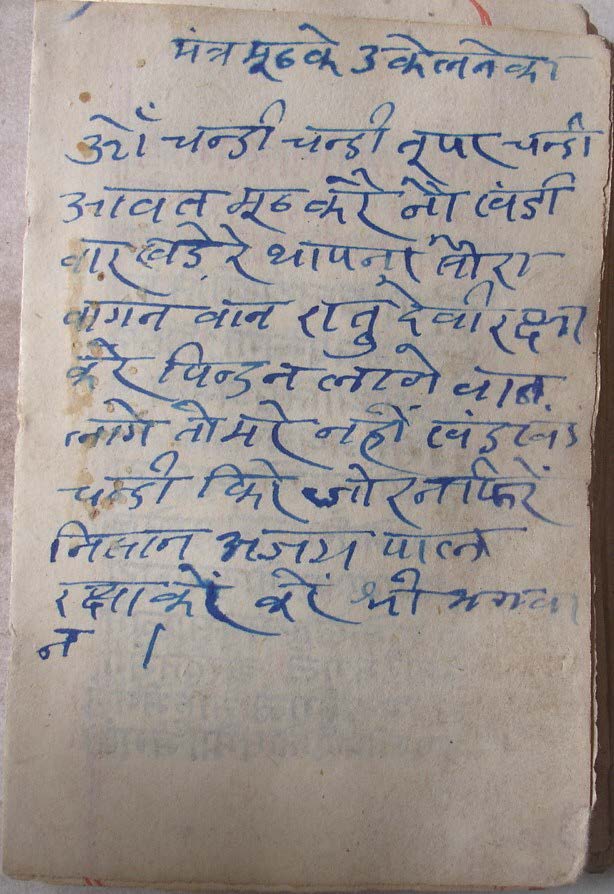 मंत्र मूठ के उकेलने का
ओँ चन्डी चन्डी तू पर चन्डी
आवत मूठ करै नौ खंडी
वार खडे़ रे थापना तोरा
वागन वान रातु देवी रक्षा
करै पिन्ड न लागे वान
लागे तो मरे नहीं खंड खंड
चन्डी फिरे और ना फिरें
निसान अजय पाल
रक्षा करें करें श्री भगवा
न ।